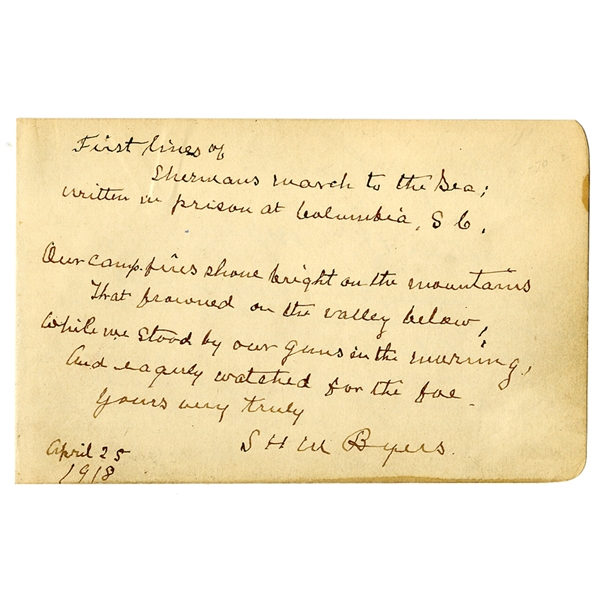 First lines of
Shermans march to the Sea;
written in prison at Columbia, S C.
Our camp-fires shone bright on the mountains
That frowned on the valley below,
While we stood by our guns in the morning,
And eagerly watched for the foe.
Yours very truly
S H M Byers.
April 25
1918